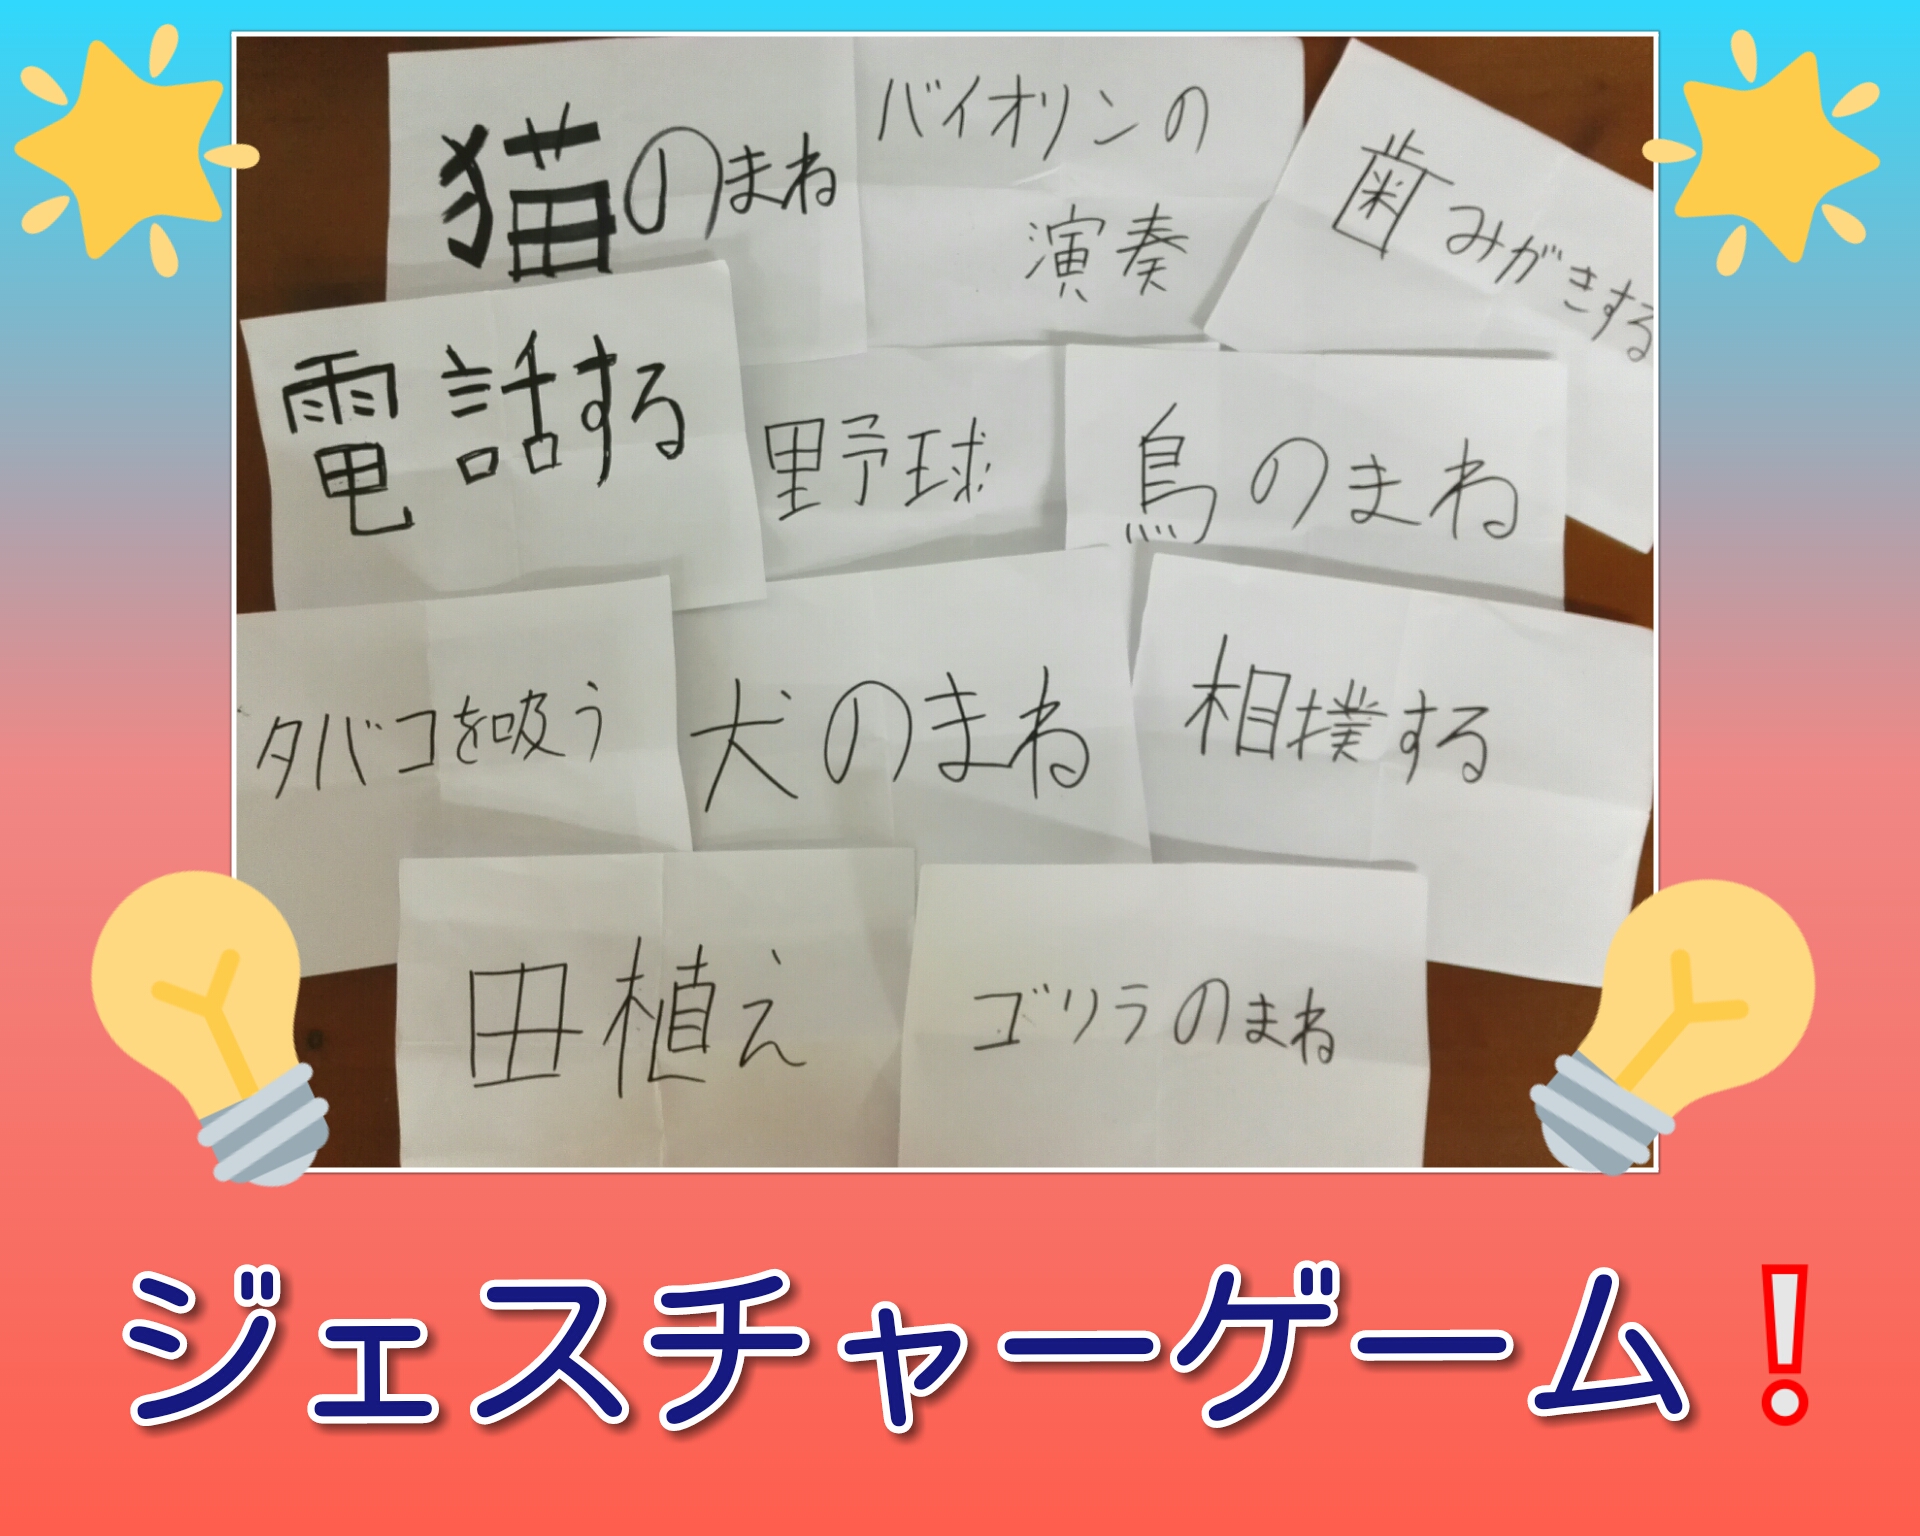 猫のまね
バイオリンの
演奏
歯みがきする
電話する
野球
鳥のまね
タバコを吸う
犬のまね
相撲する
田植え
ゴリラのまね
ジェスチャーゲーム❗